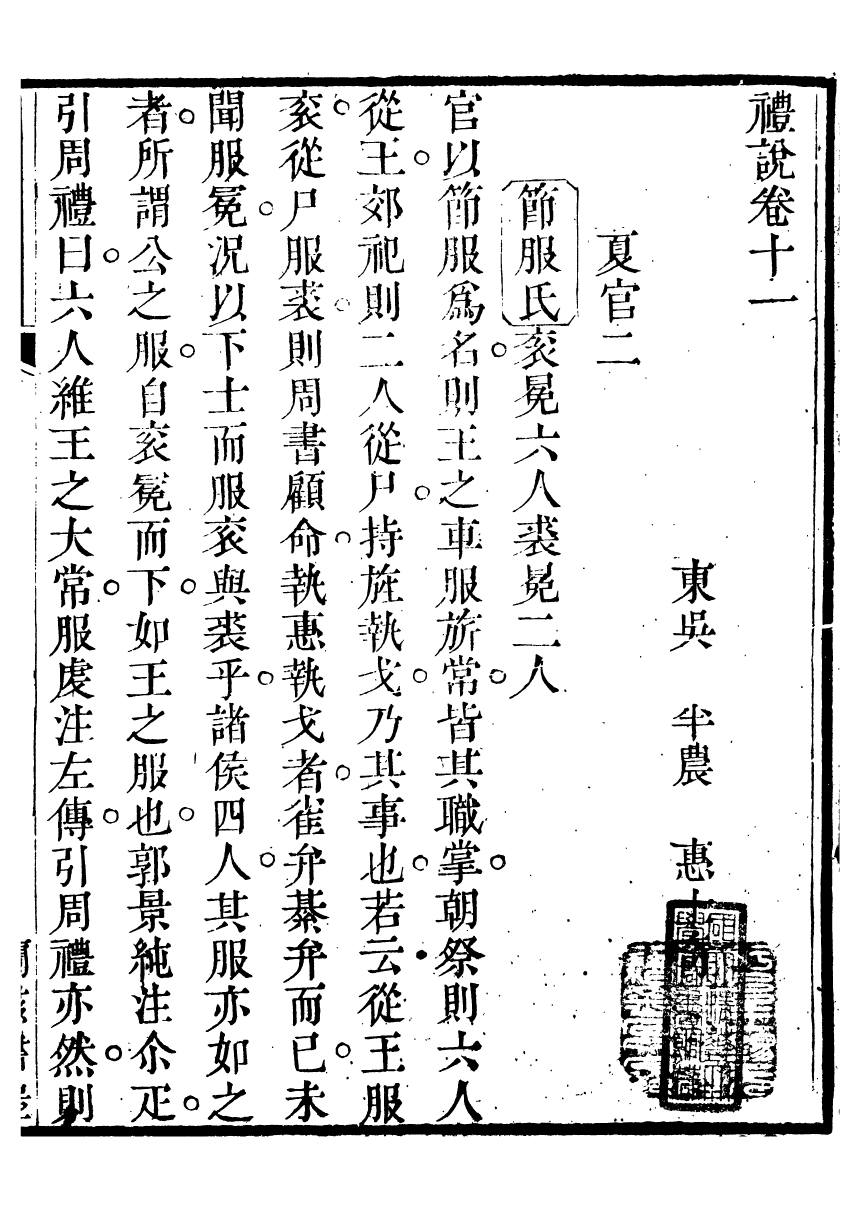 禮說卷十一
東吳 半農 惠士
夏官二
節服氏衮冕六人裘冕二人
官以節服爲名則王之車服旂常皆其職掌朝祭則六人
從王郊祀則二人從尸持旌執戈乃其事也若云從王服
衮從尸服裘則周書顧命執惠執戈者雀弁綦弁而已未
聞服冕況以下士而服衮與裘乎諸侯四人其服亦如之
者所謂公之服自衮冕而下如王之服也郭景純注尒疋
引周禮曰六人維王之大常服虔注左傳引周禮亦然則